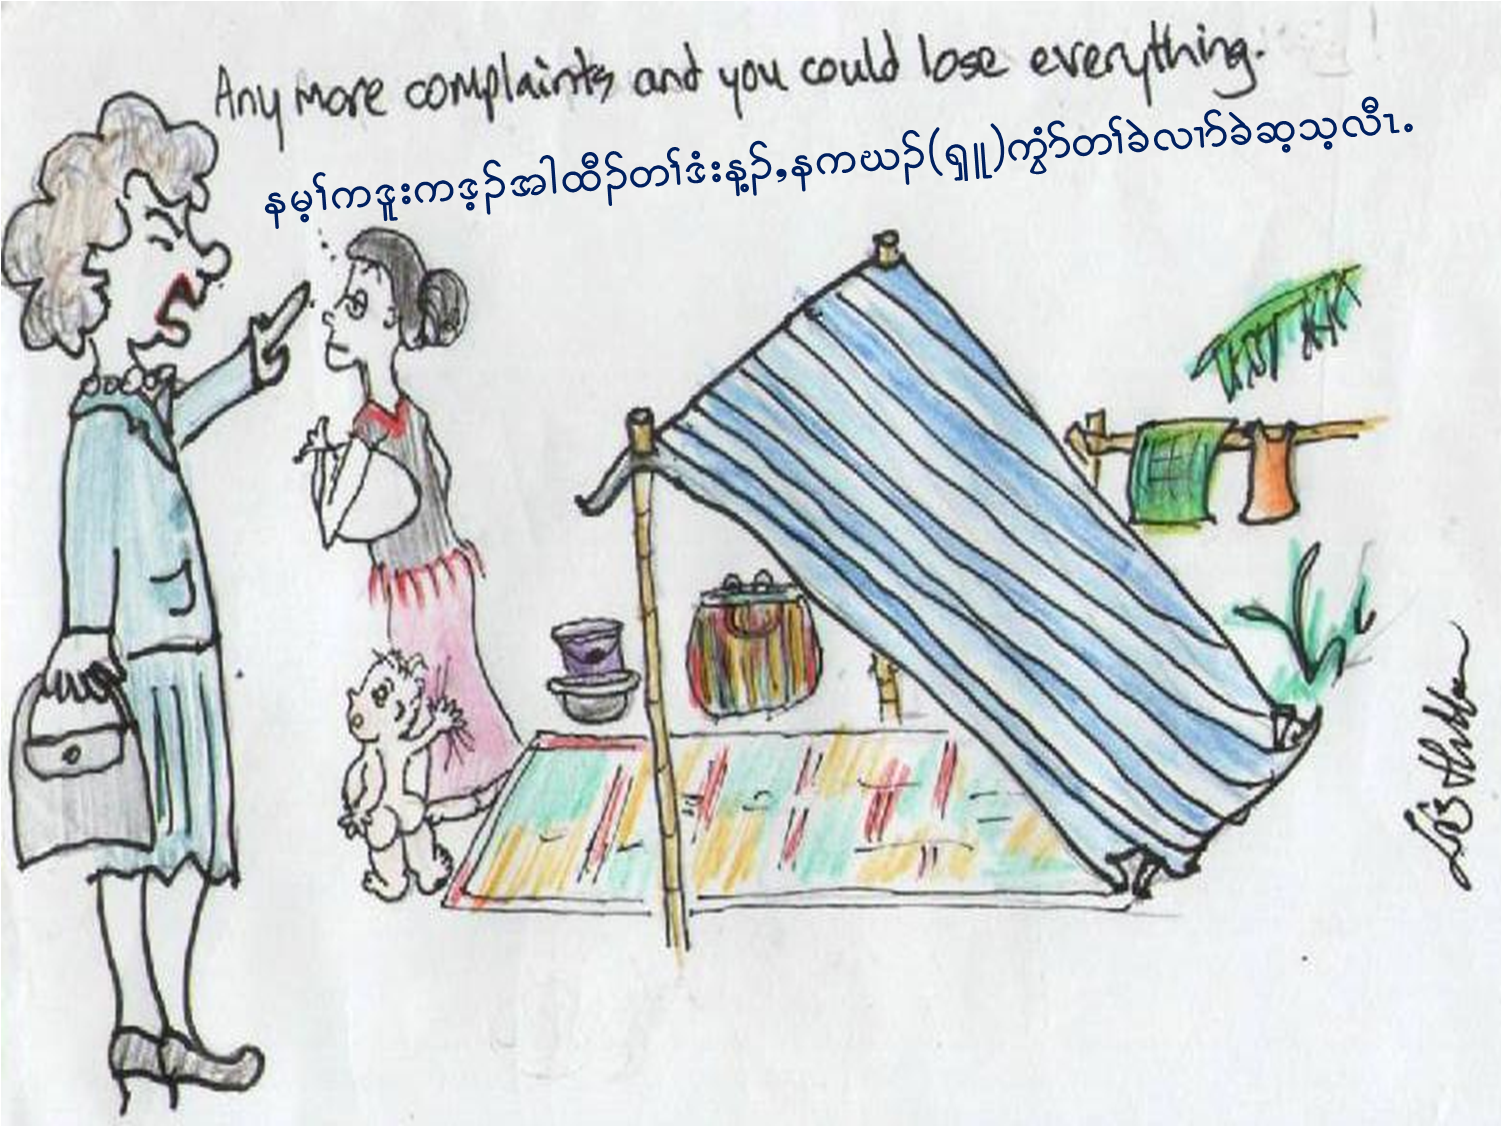 Any more complaints and you could lose everything.
နမ့ၢ်ကဒူးကဒ့ၣ်အါထီၣ်တၢ်ဒံးန့ၣ်,နကဃၣ်(ရှူ)ကွံာ်တၢ်ခဲလၢာ်ခဲဆ့သ့လီၤ.